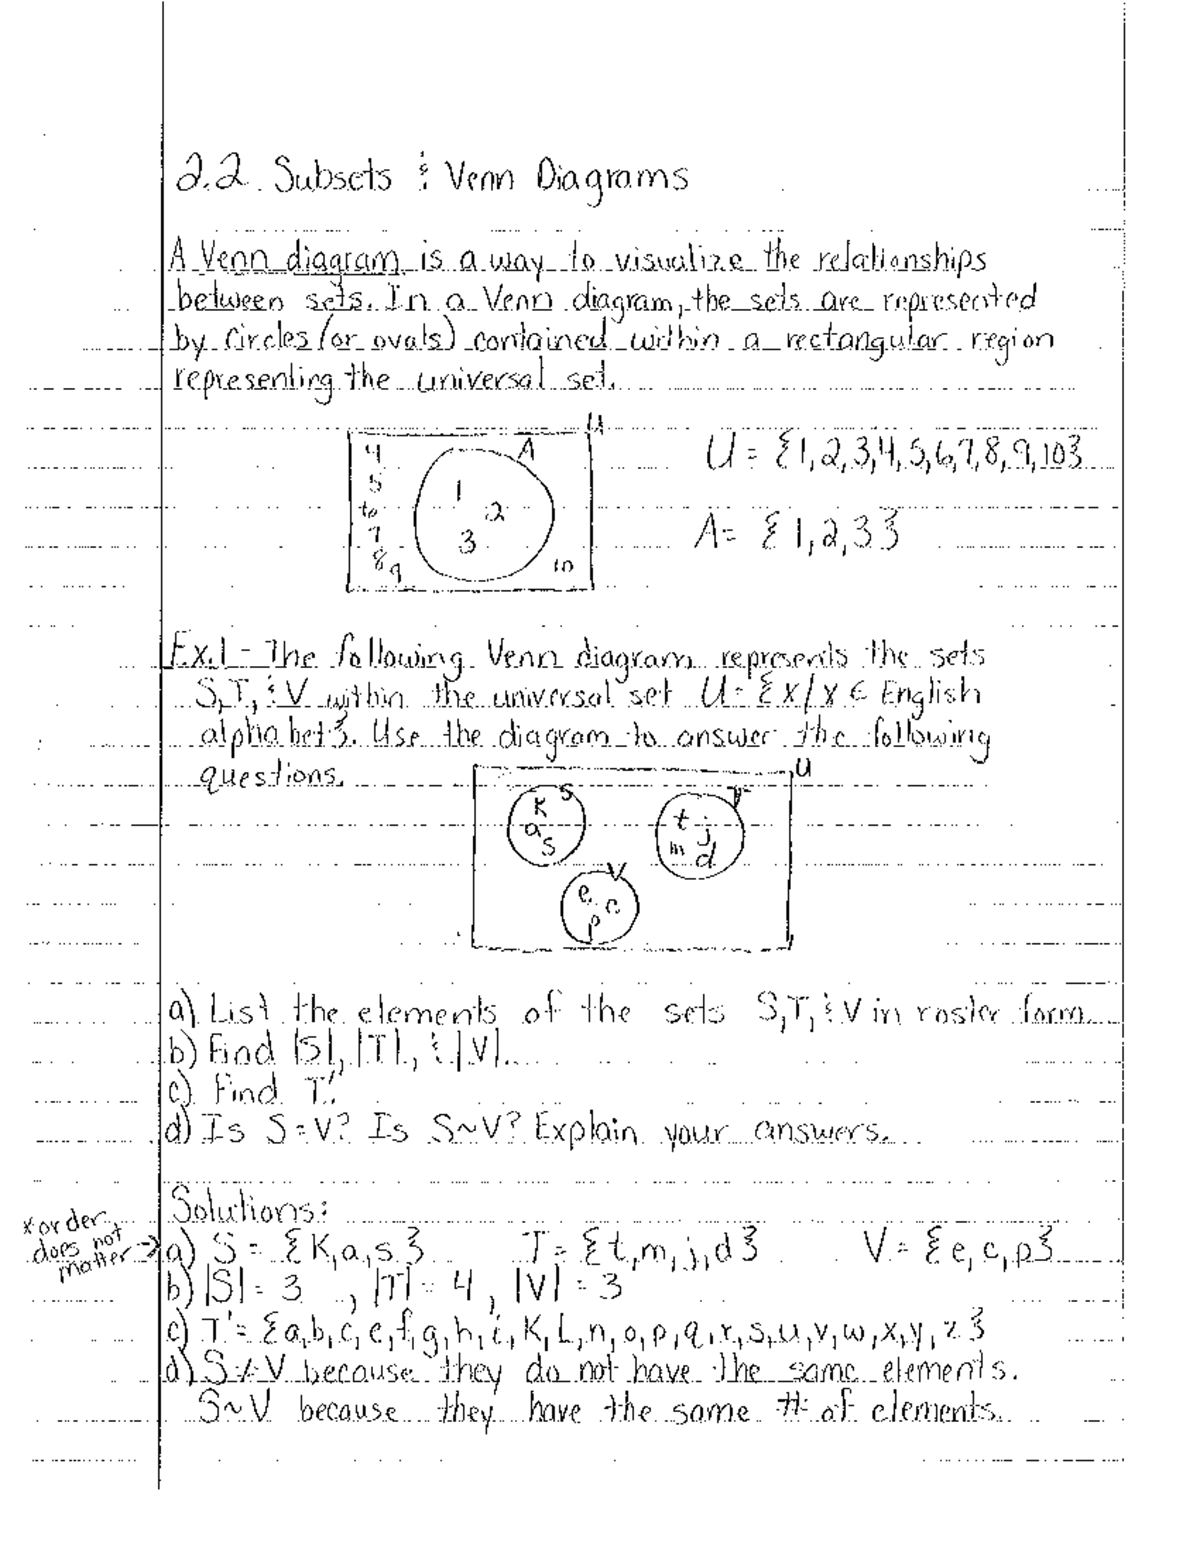 2.2 Subsets & Venn Diagrams
A Venn diagram is a way to visualize the relationships
between sets. In a Venn diagram, the sets are represented
by circles (or ovals) contained within a rectangular region
representing the universal set.
U
4 A U = {1,2,3,4,5,6,7,8,9,10}
5 1
6 2 A = {1,2,3}
7 3
8 9 10
Ex.1 - The following Venn diagram represents the sets
S, T, & V within the universal set U = {x/x ∈ English
alphabet}. Use the diagram to answer the following
questions.
U
K S t j T
a s m d
V
e c
p
a) List the elements of the sets S, T, & V in roster form.
b) Find |S|, |T|, & |V|.
c) Find T'.
d) Is S = V? Is S ~ V? Explain your answers.
Solutions:
* order does not matter →
a) S = {K, a, s} T = {t, m, j, d} V = {e, c, p}
b) |S| = 3, |T| = 4, |V| = 3
c) T' = {a, b, c, e, f, g, h, i, K, L, n, o, p, q, r, s, u, v, w, x, y, z}
d) S ≠ V because they do not have the same elements.
S ~ V because they have the same # of elements.